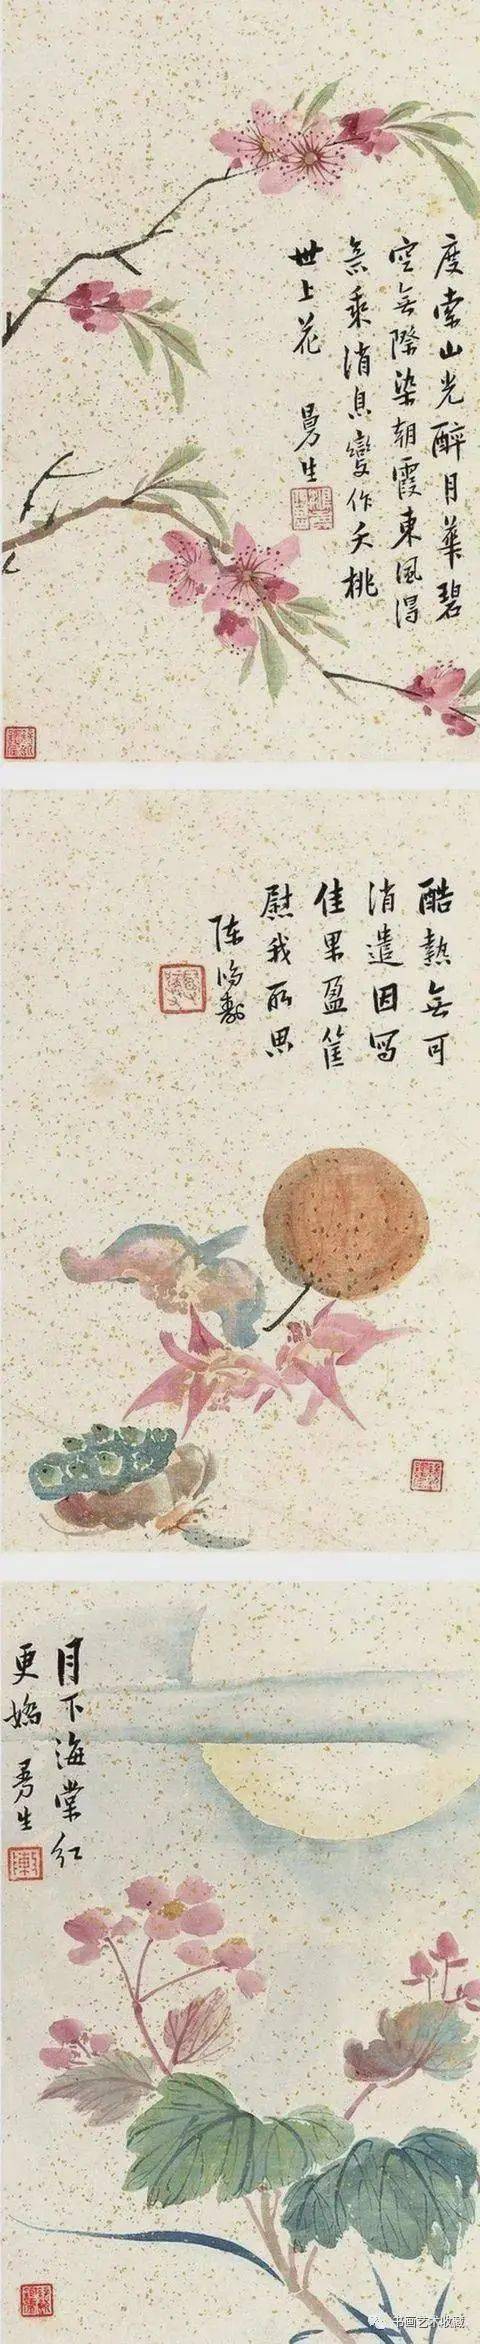 度索山光醉月華碧
空無際染朝霞東風得
氣乘消息變作夭桃
世上花
曼生
酷熱無可
消遣因寫
佳果盈筐
慰我所思
陈鴻壽
月下海棠紅
更嬌
曼生
书画艺术收藏